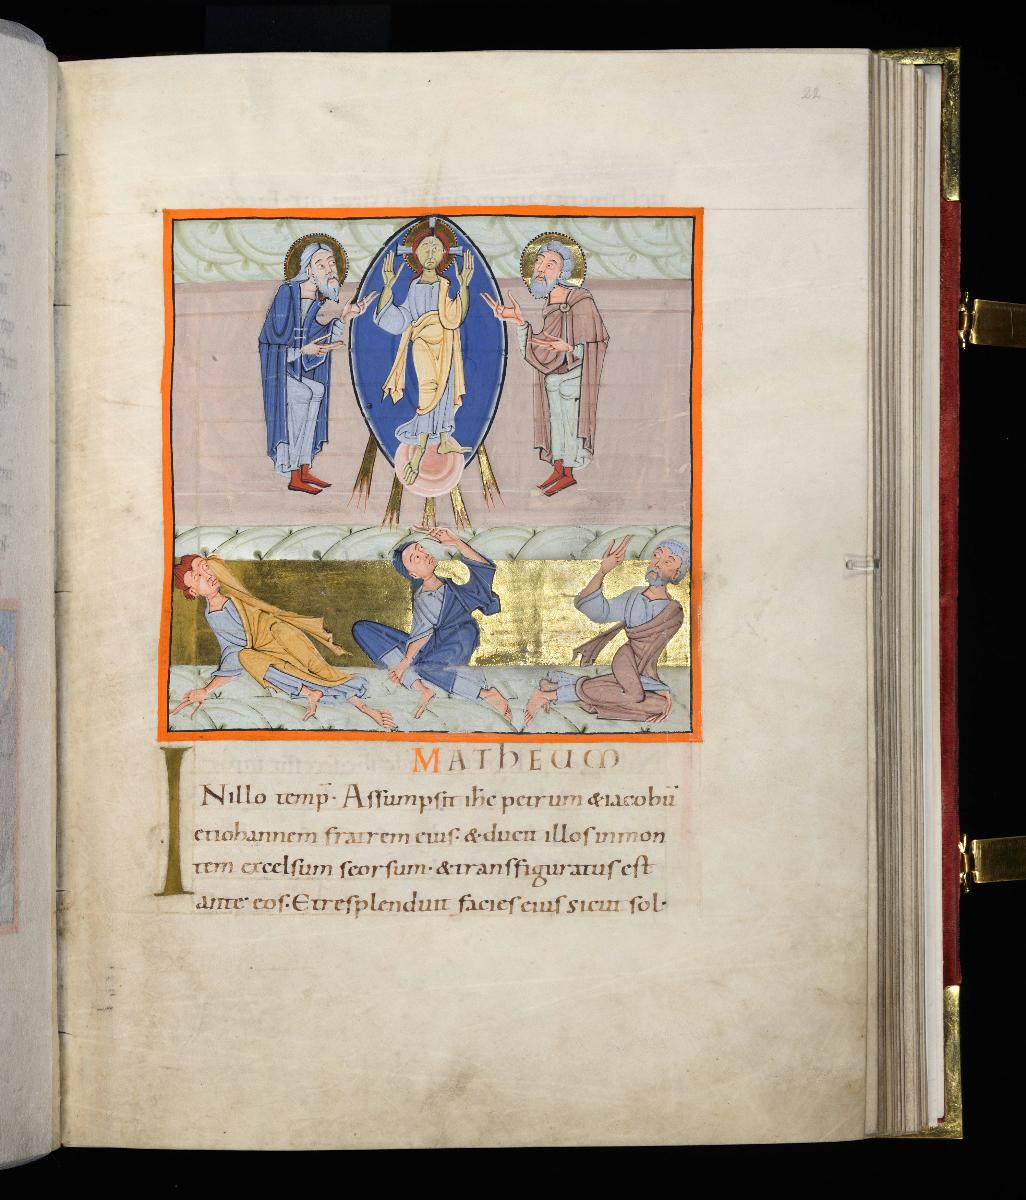 22
MATHEUM
INillo temp̄· Assumpsit ih̄c petrum &iacobū
etiohannem fratrem eius· &ducit illosinmon
tem excelsum seorsum· &transfiguratus est
ante eos· Etresplenduit facies eius sicut sol·